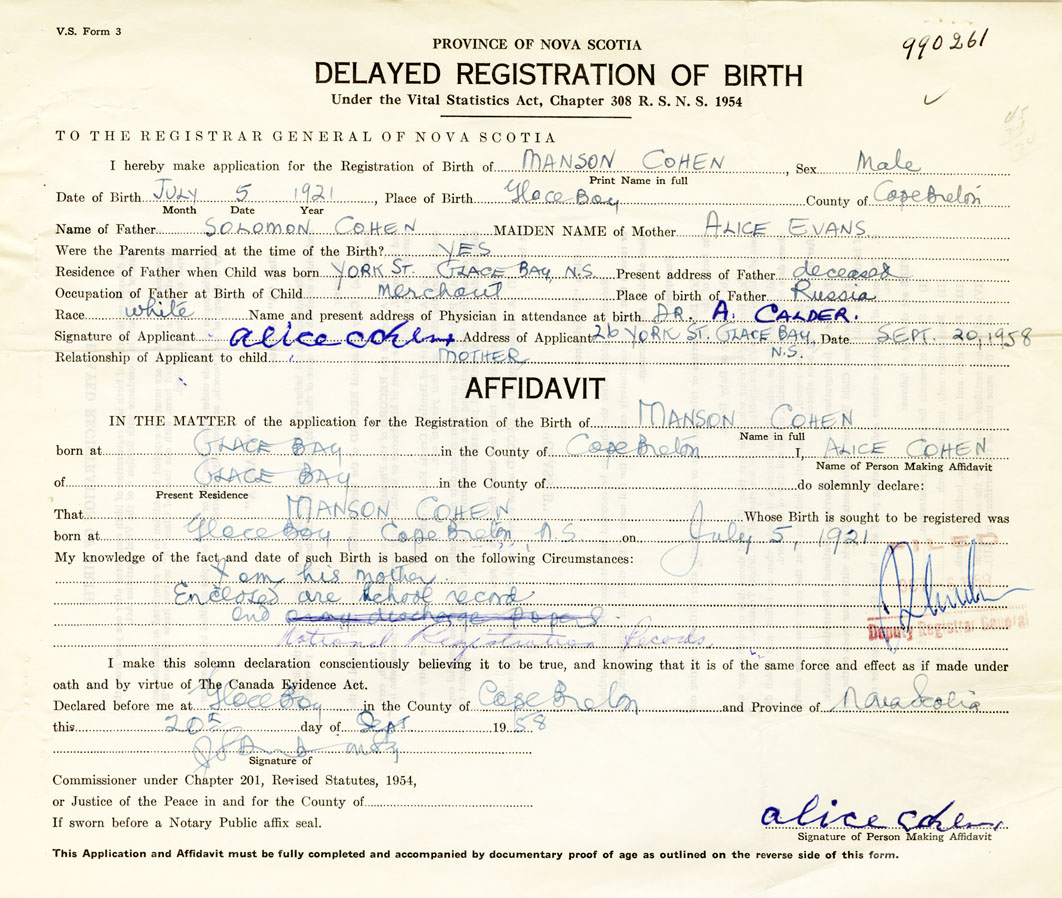 V.S. Form 3
990261
PROVINCE OF NOVA SCOTIA
DELAYED REGISTRATION OF BIRTH
Under the Vital Statistics Act, Chapter 308 R. S. N. S. 1954
TO THE REGISTRAR GENERAL OF NOVA SCOTIA
I hereby make application for the Registration of Birth of MANSON COHEN, Sex Male
Print Name in full
Date of Birth JULY 5 1921, Place of Birth Glace Bay County of Cape Breton
Month Date Year
Name of Father SOLOMON COHEN MAIDEN NAME of Mother ALICE EVANS
Were the Parents married at the time of the Birth? YES
Residence of Father when Child was born YORK ST. GLACE BAY, N.S. Present address of Father deceased
Occupation of Father at Birth of Child Merchant Place of birth of Father Russia
Race white Name and present address of Physician in attendance at birth DR. A. CALDER.
Signature of Applicant alice cohen Address of Applicant 26 YORK ST. GLACE BAY, Date SEPT. 20, 1958
Relationship of Applicant to child MOTHER N.S.
AFFIDAVIT
IN THE MATTER of the application for the Registration of the Birth of MANSON COHEN
Name in full
born at GLACE BAY in the County of Cape Breton I, ALICE COHEN
Name of Person Making Affidavit
of GLACE BAY in the County of do solemnly declare:
Present Residence
That MANSON COHEN Whose Birth is sought to be registered was
born at Glace Bay, Cape Breton, N.S. on July 5, 1921
My knowledge of the fact and date of such Birth is based on the following Circumstances:
I am his mother.
Enclosed are school record
and army discharge papers
National Registration Records.
FILED
Deputy Registrar General
I make this solemn declaration conscientiously believing it to be true, and knowing that it is of the same force and effect as if made under
oath and by virtue of The Canada Evidence Act.
Declared before me at Glace Bay in the County of Cape Breton and Province of Nova Scotia
this 20th day of Sept 1958
Signature of
Commissioner under Chapter 201, Revised Statutes, 1954,
or Justice of the Peace in and for the County of
If sworn before a Notary Public affix seal.
alice cohen
Signature of Person Making Affidavit
This Application and Affidavit must be fully completed and accompanied by documentary proof of age as outlined on the reverse side of this form.